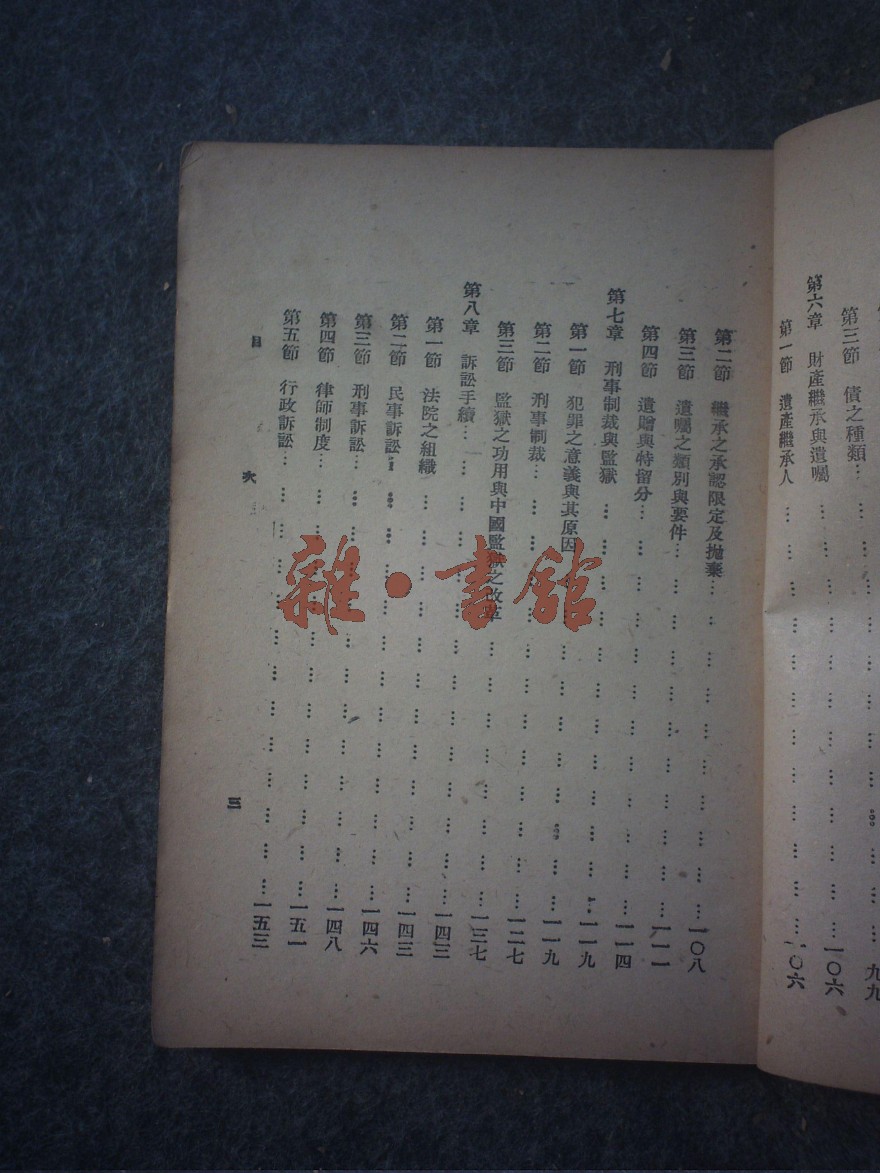 第三節 債之種類……九九
第六章 財產繼承與遺囑……一〇六
第一節 遺產繼承人……一〇六
第二節 繼承之承認限定及拋棄……一〇八
第三節 遺囑之類別與要件……一一一
第四節 遺贈與特留分……一一四
第七章 刑事制裁與監獄……一一九
第一節 犯罪之意義與其原因……一一九
第二節 刑事制裁……一二七
第三節 監獄之功用與中國監獄之改革……一三七
第八章 訴訟手續……一四三
第一節 法院之組織……一四三
第二節 民事訴訟……一四六
第三節 刑事訴訟……一四八
第四節 律師制度……一五一
第五節 行政訴訟……一五三
目次
三
雜·書館